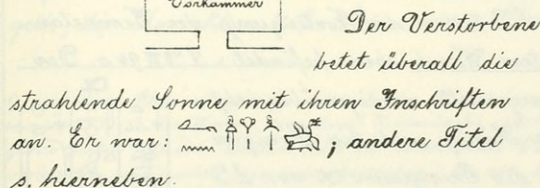 Vorkammer
Der Verstorbene
betet überall die
strahlende Sonne mit ihren Inschriften
an. Er war: ; andere Titel
s. hierneben.